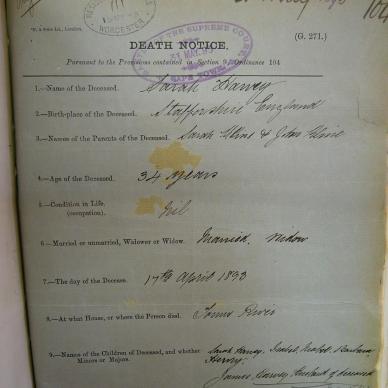 WORCESTER
OF THE SUPREME COURT
31 MAY 93
CAPE TOWN
W. & Sons Ld., London.
DEATH NOTICE,
(G. 271.)
Pursuant to the Provisions contained in Section 9, Ordinance 104
1.—Name of the Deceased. Sarah Harvey
2.—Birth-place of the Deceased. Staffordshire England
3.—Names of the Parents of the Deceased. Sarah & John
4.—Age of the Deceased. 34 years
5.—Condition in Life. (occupation). Nil
6.—Married or unmarried, Widower or Widow. Married.
7.—The day of the Decease. 17th April 1893
8.—At what House, or where the Person died. Touws River
9.—Names of the Children of Deceased, and whether Minors or Majors. Sarah Harvey, Isabel, Barbara
Harvey
James Harvey Husband of deceased